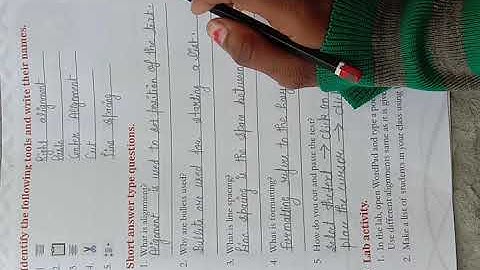 Identify the following tools and write their names.
1. Right alignment
2. Paste
3. Center Alignment
4. Cut
5. Line spacing
Short answer type questions.
1. What is alignment?
Alignment is used to set position of the text.
2. Why are bullets used?
Bullets are used for starting a list.
3. What is line spacing?
Line spacing is the space between
4. What is formatting?
Formatting refers to the
5. How do you cut and paste the text?
select the text → click on
place the cursor →
Lab activity.
1. In the lab, open WordPad and type a
Use different alignments same as it is
2. Make a list of students in your class using